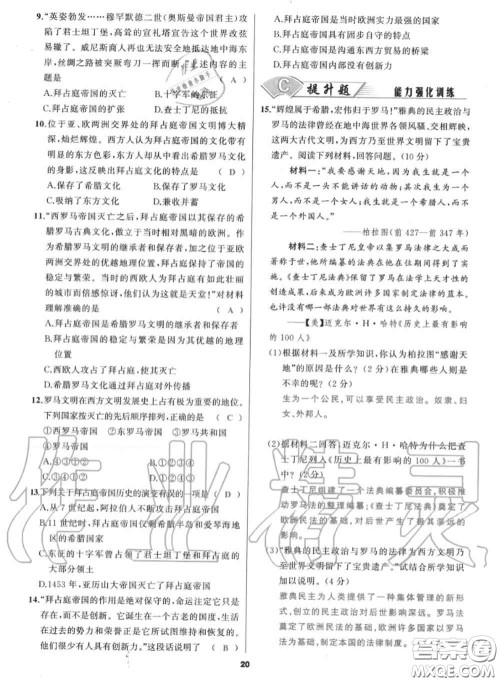 9.“英姿勃发……穆罕默德二世(奥斯曼帝国君主)攻
陷了君士坦丁堡,高耸的宣礼塔宣告这个世界改弦
易辙了。威尼斯商人再也无法安全地抵达地中海东
岸,丝绸之路被突厥弯刀挥断……”这一内容的主
题是 ( A )
A.拜占庭帝国的灭亡 B.十字军的东征
C.拜占庭帝国的扩张 D.查士丁尼的抵抗
10.位于亚、欧两洲交界处的拜占庭帝国文明博大精
深,灿烂辉煌。西方人认为拜占庭帝国的文化带有
明显的东方色彩,中东地区的人却看到了希腊文化
的身影,这反映出拜占庭文化的特点是 ( D )
A.保存了希腊文化 B.保存了罗马文化
C.吸纳了东方文化 D.兼收并蓄
11.“西罗马帝国灭亡之后,拜占庭帝国以其保存的希
腊罗马古典文化,傲立于当时相对黑暗的欧洲。作
为希腊罗马文明的继承者和保存者,加之位于亚欧
两大洲交界处的优越地理位置,拜占庭保持了帝国的
稳定与繁荣。当时西欧人为拜占庭帝国有如此壮丽
的城市而倍感惊讶,他们认为这就是天堂!”对材料
理解准确的是 ( A )
A.拜占庭帝国是希腊罗马文明的继承者和保存者
B.拜占庭帝国的稳定与繁荣是因为其优越的地理
位置
C.西欧人攻占了拜占庭,使其灭亡
D.希腊罗马文化通过拜占庭对外传播
12.罗马文明在西方文明发展史上占有极为重要的地位。
下列国家按灭亡的先后顺序排列,正确的是 ( C )
①西罗马帝国 ②东罗马帝国 ③罗马共和国
④罗马帝国
A.④③①② B.④③②①
C.③④①② D.①②③④
13.下列关于拜占庭帝国历史的演变有误的一项是 ( A )
A.从7世纪起,阿拉伯人不断攻击拜占庭帝国
B.11世纪时,拜占庭帝国仅剩希腊半岛和爱琴海地
区的领土
C.东征的十字军曾占领了君士坦丁堡和拜占庭的
大部分领土
D.1453年,亚历山大帝国灭亡了拜占庭帝国
14.“拜占庭帝国的作用是绝对保守的,命运注定它只是
存在而不是创新。它诞生在一个古老的国度,生活
在过去的势力和荣誉正是它維持和恢复的世界里,
他们很少有人具有创新思想。”这说明了 ( C )
A.拜占庭帝国是当时欧洲实力最强的国家
B.拜占庭时代是欧洲文明最重要的阶段
C.拜占庭帝国传承古典文明有余而创新不足
D.拜占庭帝国为沟通东西方贸易做出了巨大的
贡献
C 提升题 能力强化训练
15.“辉煌属于希腊,宏伟归于罗马!”雅典的民主政治与
罗马的法律曾经在地中海世界各领风骚、交相辉映,
这两大古代文明,为西方乃至世界文明留下了宝贵
遗产。阅读下列材料,回答问题。(10分)
材料一:“我要感谢天地,因为我生就是一个
人,而不是一头不能讲话的动物;其次生为一个
男人,而不是一个女人;我生就是一个希腊人,而不
是一个外国人。”
——柏拉图(前427—前347年)
材料二:查士丁尼皇帝以集罗马法律之大成而
著称于世,他所编纂的法典在他在位期间得到了实
施。《查士丁尼法典》保留了罗马在法学上天才性的创
造,后来成为欧洲许多国家制定法律的蓝本,也
许没有哪一部法典对世界有这么持久的影响。
——【美】迈克尔·H·哈特《历史上最有影响
的100人》
(1)根据材料一及所学知识,你认为柏拉图“感谢天
地”的原因是什么?(2分)在雅典哪些人则是
不幸的呢?(2分)
生为一个公民,可以享受民主政治。奴隶、妇
女、外邦人。
(2)据材料二回答:迈克尔·H·哈特为什么把查
士丁尼列入《历史上最有影响的100人》一书
中?(2分)
查士丁尼组建了一个法典编纂委员会,积极推
动罗马法的整理编纂。《查士丁尼法典》奠定了
欧洲民法的基础,对后世产生了极其深远的
影响。
(3)“雅典的民主政治与罗马的法律为西方文明乃
至世界文明留下了宝贵遗产。”试结合所学知识
加以说明。(4分)
雅典民主为人类提供了一种集体管理的新形
式,创立出一种新型的政治体制。罗马法
奠定了欧洲民法的基础,欧洲许多国家以罗马
法为基础,制定本国的法律制度。
20